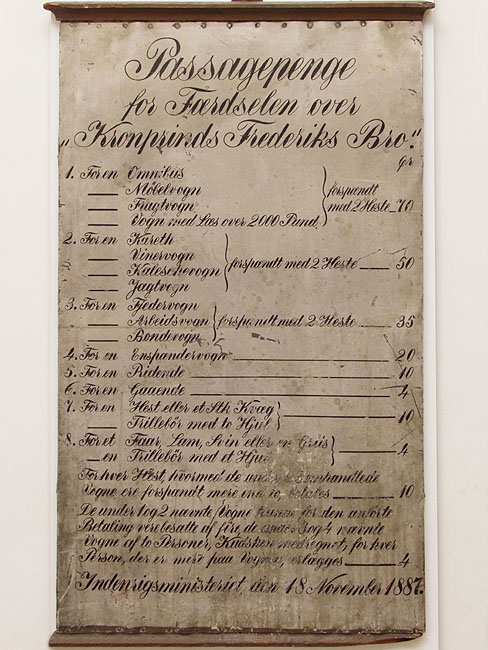 Passagepenge
for Færdselen over
„Kronprinds Frederiks Bro."
Ør
1. For en Omnibus
— Möbelvogn
— Frugtvogn
— Vogn med Læs over 2000 Pund. forspandt med 2 Heste 70
2. For en Kareth
— Vinervogn
— Kaleschevogn forspandt med 2 Heste — 50
— Jagtvogn
3. For en Fjedervogn
— Arbeidsvogn forspandt med 2 Heste — 35
— Bondevogn
4. For en Enspændervogn — 20
5. For en Ridende — 10
6. For en Gaaende — 4
7. For en Hest eller et Stk Kvæg
— Trillebör med to Hjul — 10
8. For et Faar, Lam, Svin eller en Griis
— en Trillebör med et Hjul — 4
For hver Hest, hvormed de under
Vogne ere forspandt mere end to, betales — 10
De under 1 og 2 nævnte Vogne kunne for den anførte
Betaling være besatte af fire, de under 3 og 4 nævnte
Vogne af to Personer, Kudsken medregnet; for hver
Person, der er mere paa Vognen, erlægges — 4
Indenrigsministeriet, den 18 November 1887.